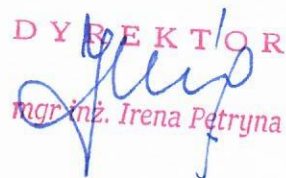 DYREKTOR
mgr inż. Irena Petryna